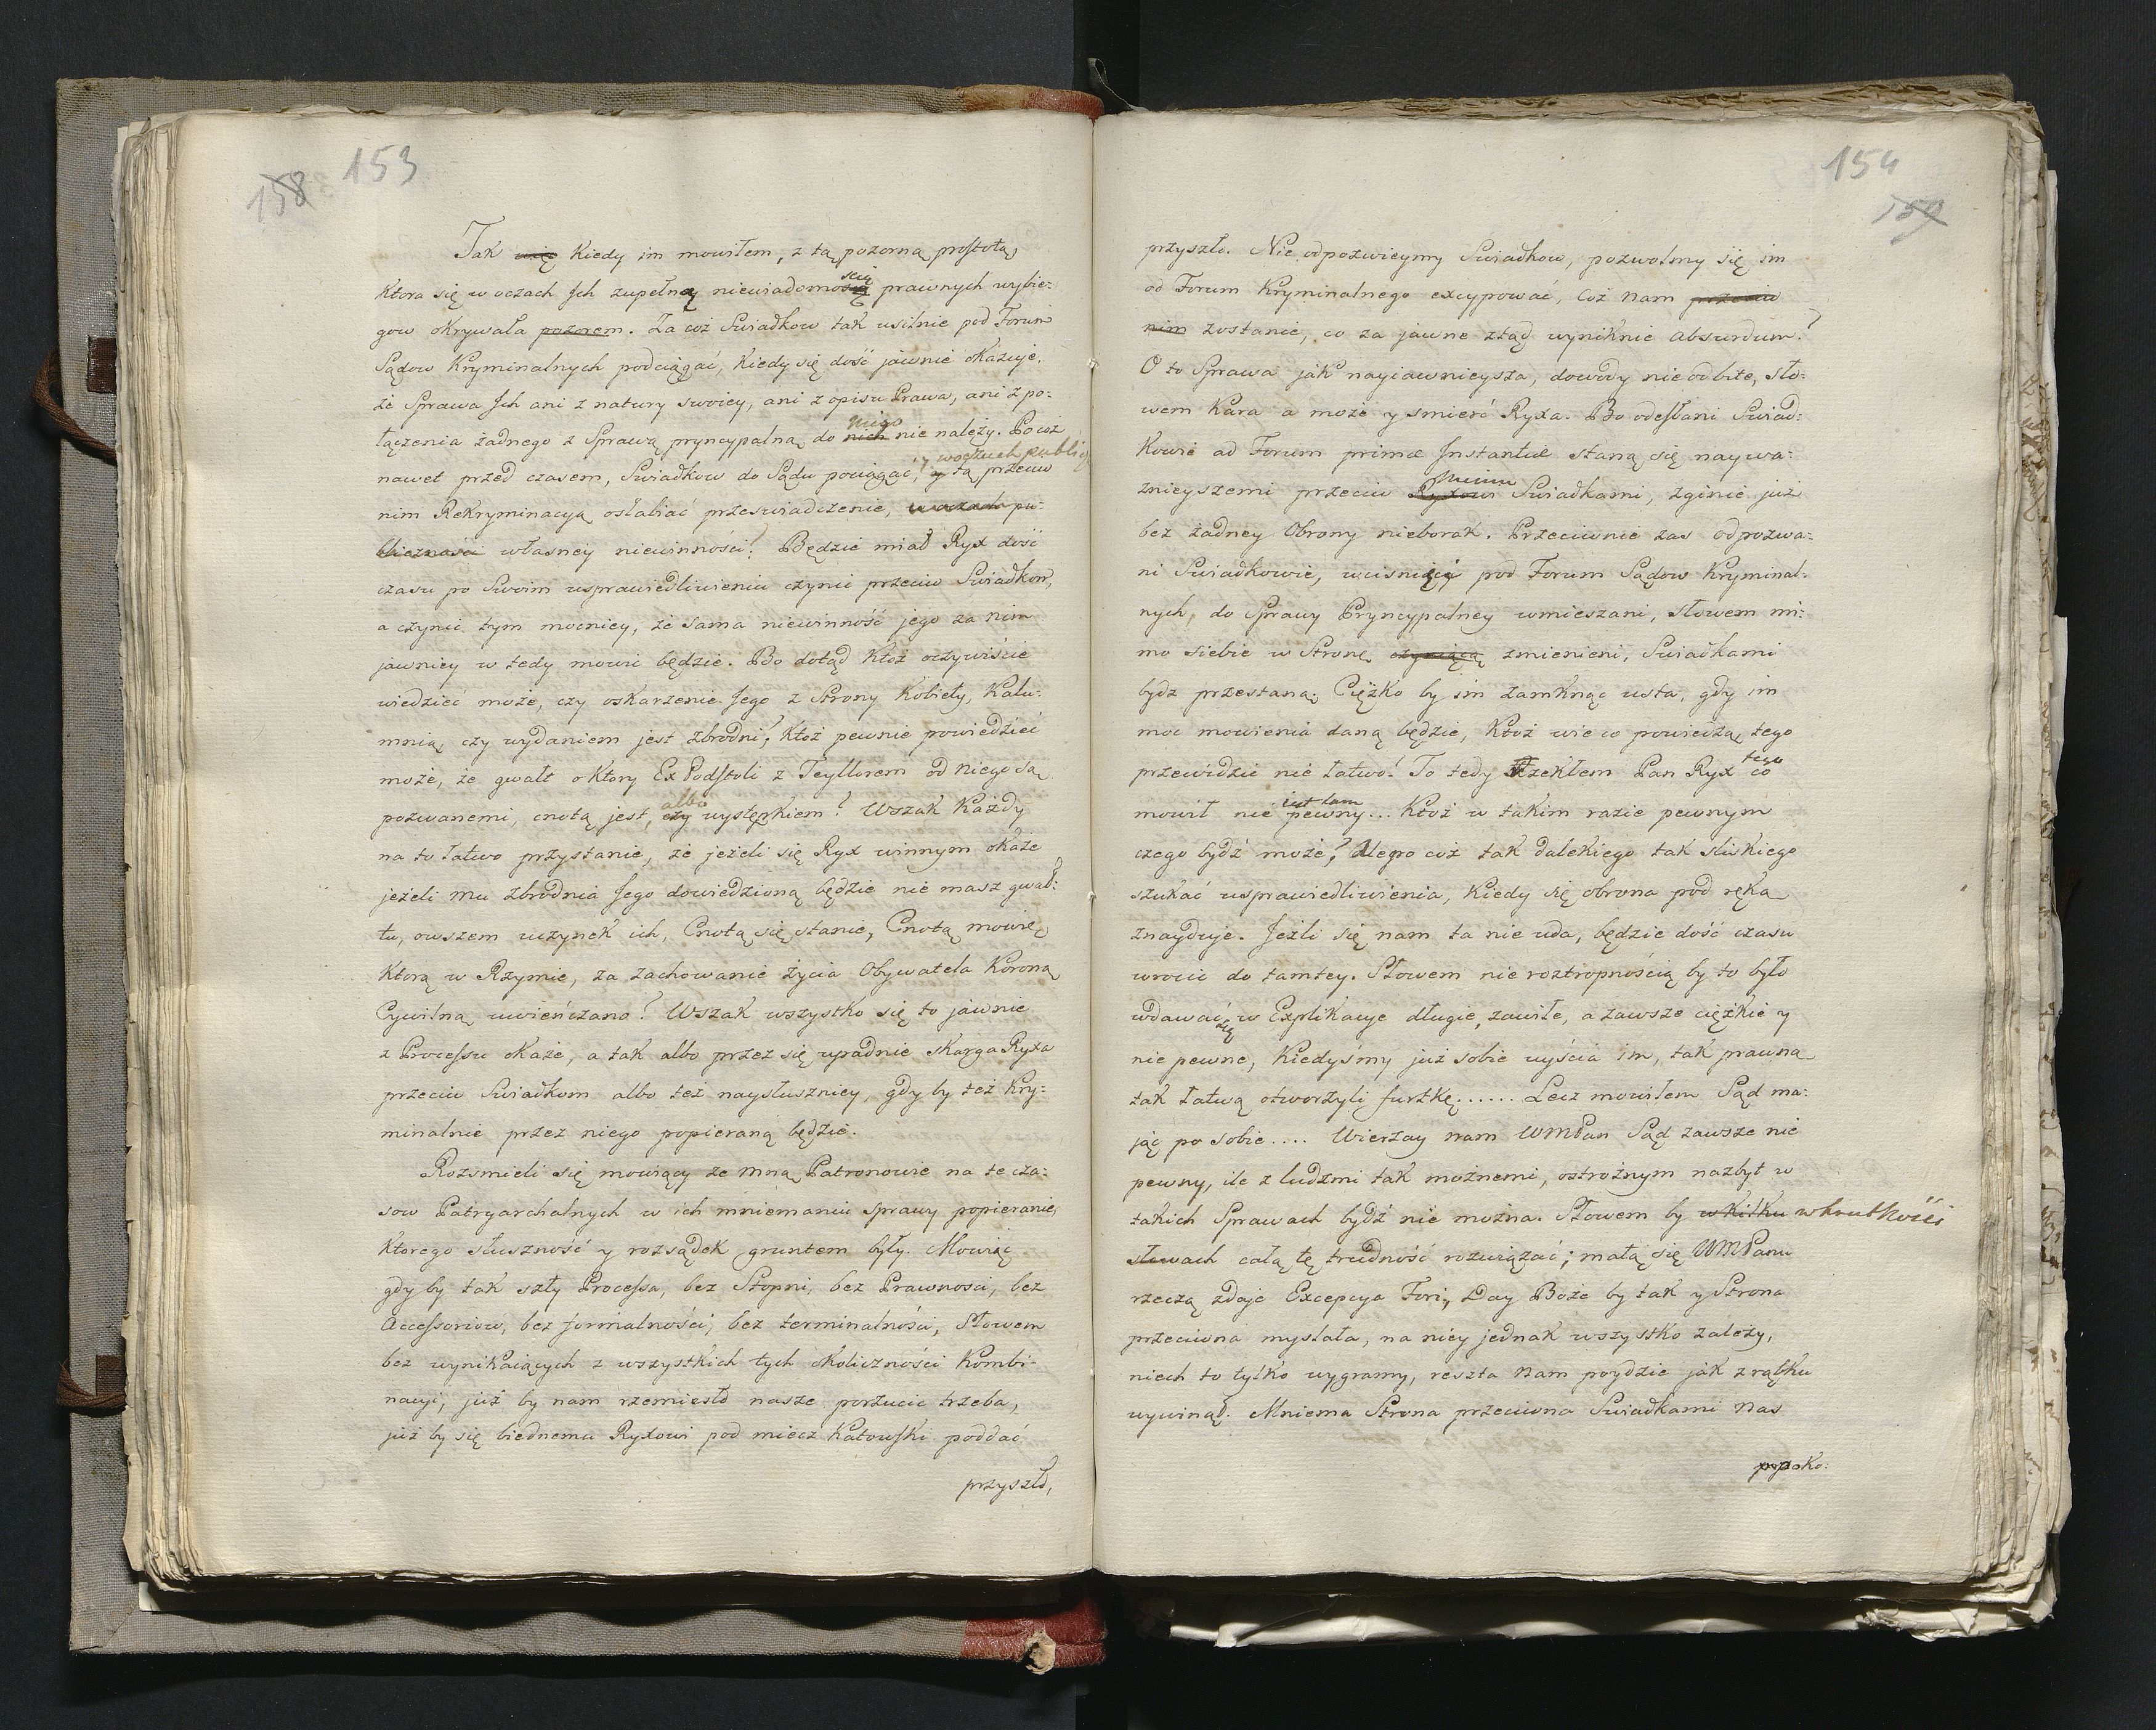 158 153
Tak więc Kiedy im mowiłem, z tą pozorną prostotą,
ktora się w oczach Ich zupełną niewiadomością prawnych wybie-
scią
gow okrywała pozorem. Za coż Swiadkow tak usilnie pod Forum
Sądow Kryminalnych podciągać, kiedy się dość jawnie okazuje,
że Sprawa Ich ani z natury swoiey, ani z opisu Prawa, ani z po-
łączenia żadnego z Sprawą pryncypalną do nich nie należy. Po coż
niego
nawet przed czasem, Swiadkow do Sądu pociągać, y tą przeciw
w oczach public
nim Rekryminacyą osłabiać przeswiadczenie, w oczach pu-
bliczności własney niewinności? Będzie miał Ryx dość
czasu po Swoim usprawiedliwieniu czynić przeciw Swiadkow,
a czynić tym mocniey, że sama niewinność jego za nim
jawniey w tedy mowić będzie. Bo dotąd Ktoż oczywiście
wiedzieć może, czy oskarzenie Jego z Strony Kobiety, Kalu-
mnią, czy wydaniem jest zbrodni? Ktoż pewnie powiedzieć
może, że gwałt o ktory Ex Podstoli z Teyllorem od niego są
pozwanemi, cnotą jest, czy występkiem? Wszak Każdy
albo
na to łatwo przystanie, że jeżeli się Ryx winnym okaże
jeżeli mu zbrodnia Jego dowiedzioną będzie nie masz gwał-
tu, owszem uczynek ich, Cnotą się stanie, Cnotą mowię
Ktorą w Rzymie, za zachowanie życia Obywatela Koroną
Cywilną uwieńczano? Wszak wszystko się to jawnie
z Processu okaże, a tak albo przez się upadnie skarga Ryxa
przeciw Swiadkom albo też naysłuszniey, gdy by też Kry-
minalnie przez niego popieraną będzie.
Rozsmieli się mowiący ze mną Patronowie na te cza-
sow Patryarchalnych w ich mniemaniu sprawy popieranie,
Ktorego słuszność y rozsądek gruntem były. Mowiąc
gdy by tak szły Processa, bez Stopni, bez Prawnosci, bez
Accessoriow, bez formalności, bez terminalności, Słowem
bez wynikaiących z wszystkich tych okoliczności Kombi-
nacyi, już by nam rzemiesło nasze porzucić trzeba,
już by się biednemu Ryxowi pod miecz Katowski poddać
przyszło,
154 159
przyszło. Nie odpozwieymy Swiadkow, pozwolmy się im
od Forum Kryminalnego excypować, Coż nam przeciw
nim zostanie, co za jawne ztąd wyniknie absurdum?
O to Sprawa jak nayiawnieysza, dowody nie odbite, sło-
wem Kara a może y smierć Ryxa. Bo odesłani Swiad-
Kowie ad Forum primæ Instantiæ staną się naywa-
znieyszemi przeciw Ryxowi Swiadkami, zginie już
Niemu
bez żadney Obrony nieborak. Przeciwnie zas odpozwa-
ni Swiadkowie, wcisnięci pod Forum Sądow Kryminal-
nych, do Sprawy Pryncypalney wmieszani, słowem mi-
mo siebie w Stronę czyniącą zmienieni, Swiadkami
bydz przestaną; Ciężko by im zamknąć usta, gdy im
moc mowienia daną będzie, Ktoż wie co powiedzą, tego
przewidzie nie łatwo! To tedy Rzekłem Pan Ryx co
tego
mowił nie pewny... Ktoż w takim razie pewnym
iest tam
czego bydź może? Alepo coż tak dalekiego tak sliskiego
szukać usprawiedliwienia, Kiedy się obrona pod ręką
znayduje. Jeżli się nam ta nie uda, będzie dość czasu
wrocić do tamtey. Słowem nie roztropnością by to było
wdawać się w Explikacye długie, zawiłe, a zawsze ciężkie y
nie pewne, Kiedyśmy już sobie uyścia im, tak prawną
tak łatwą otworzyli furtkę...... Lecz mowiłem Sąd ma-
jąc po sobie.... Wierzay nam WMPan Sąd zawsze nie
pewny, ile z ludzmi tak możnemi, ostrożnym nazbyt w
takich Sprawach bydź nie można. Słowem by w kilku w krutkości
słowach całą tę trudność rozwiązać; małą się WMPanu
rzeczą zdaje Excepcya Fori, Day Boże by tak y Strona
przeciwna myslała, na niey jednak wszystko zależy,
niech to tylko wygramy, reszta nam poydzie jak z rąbku
wywinął. Mniema Strona przeciwna Swiadkami nas
poko-